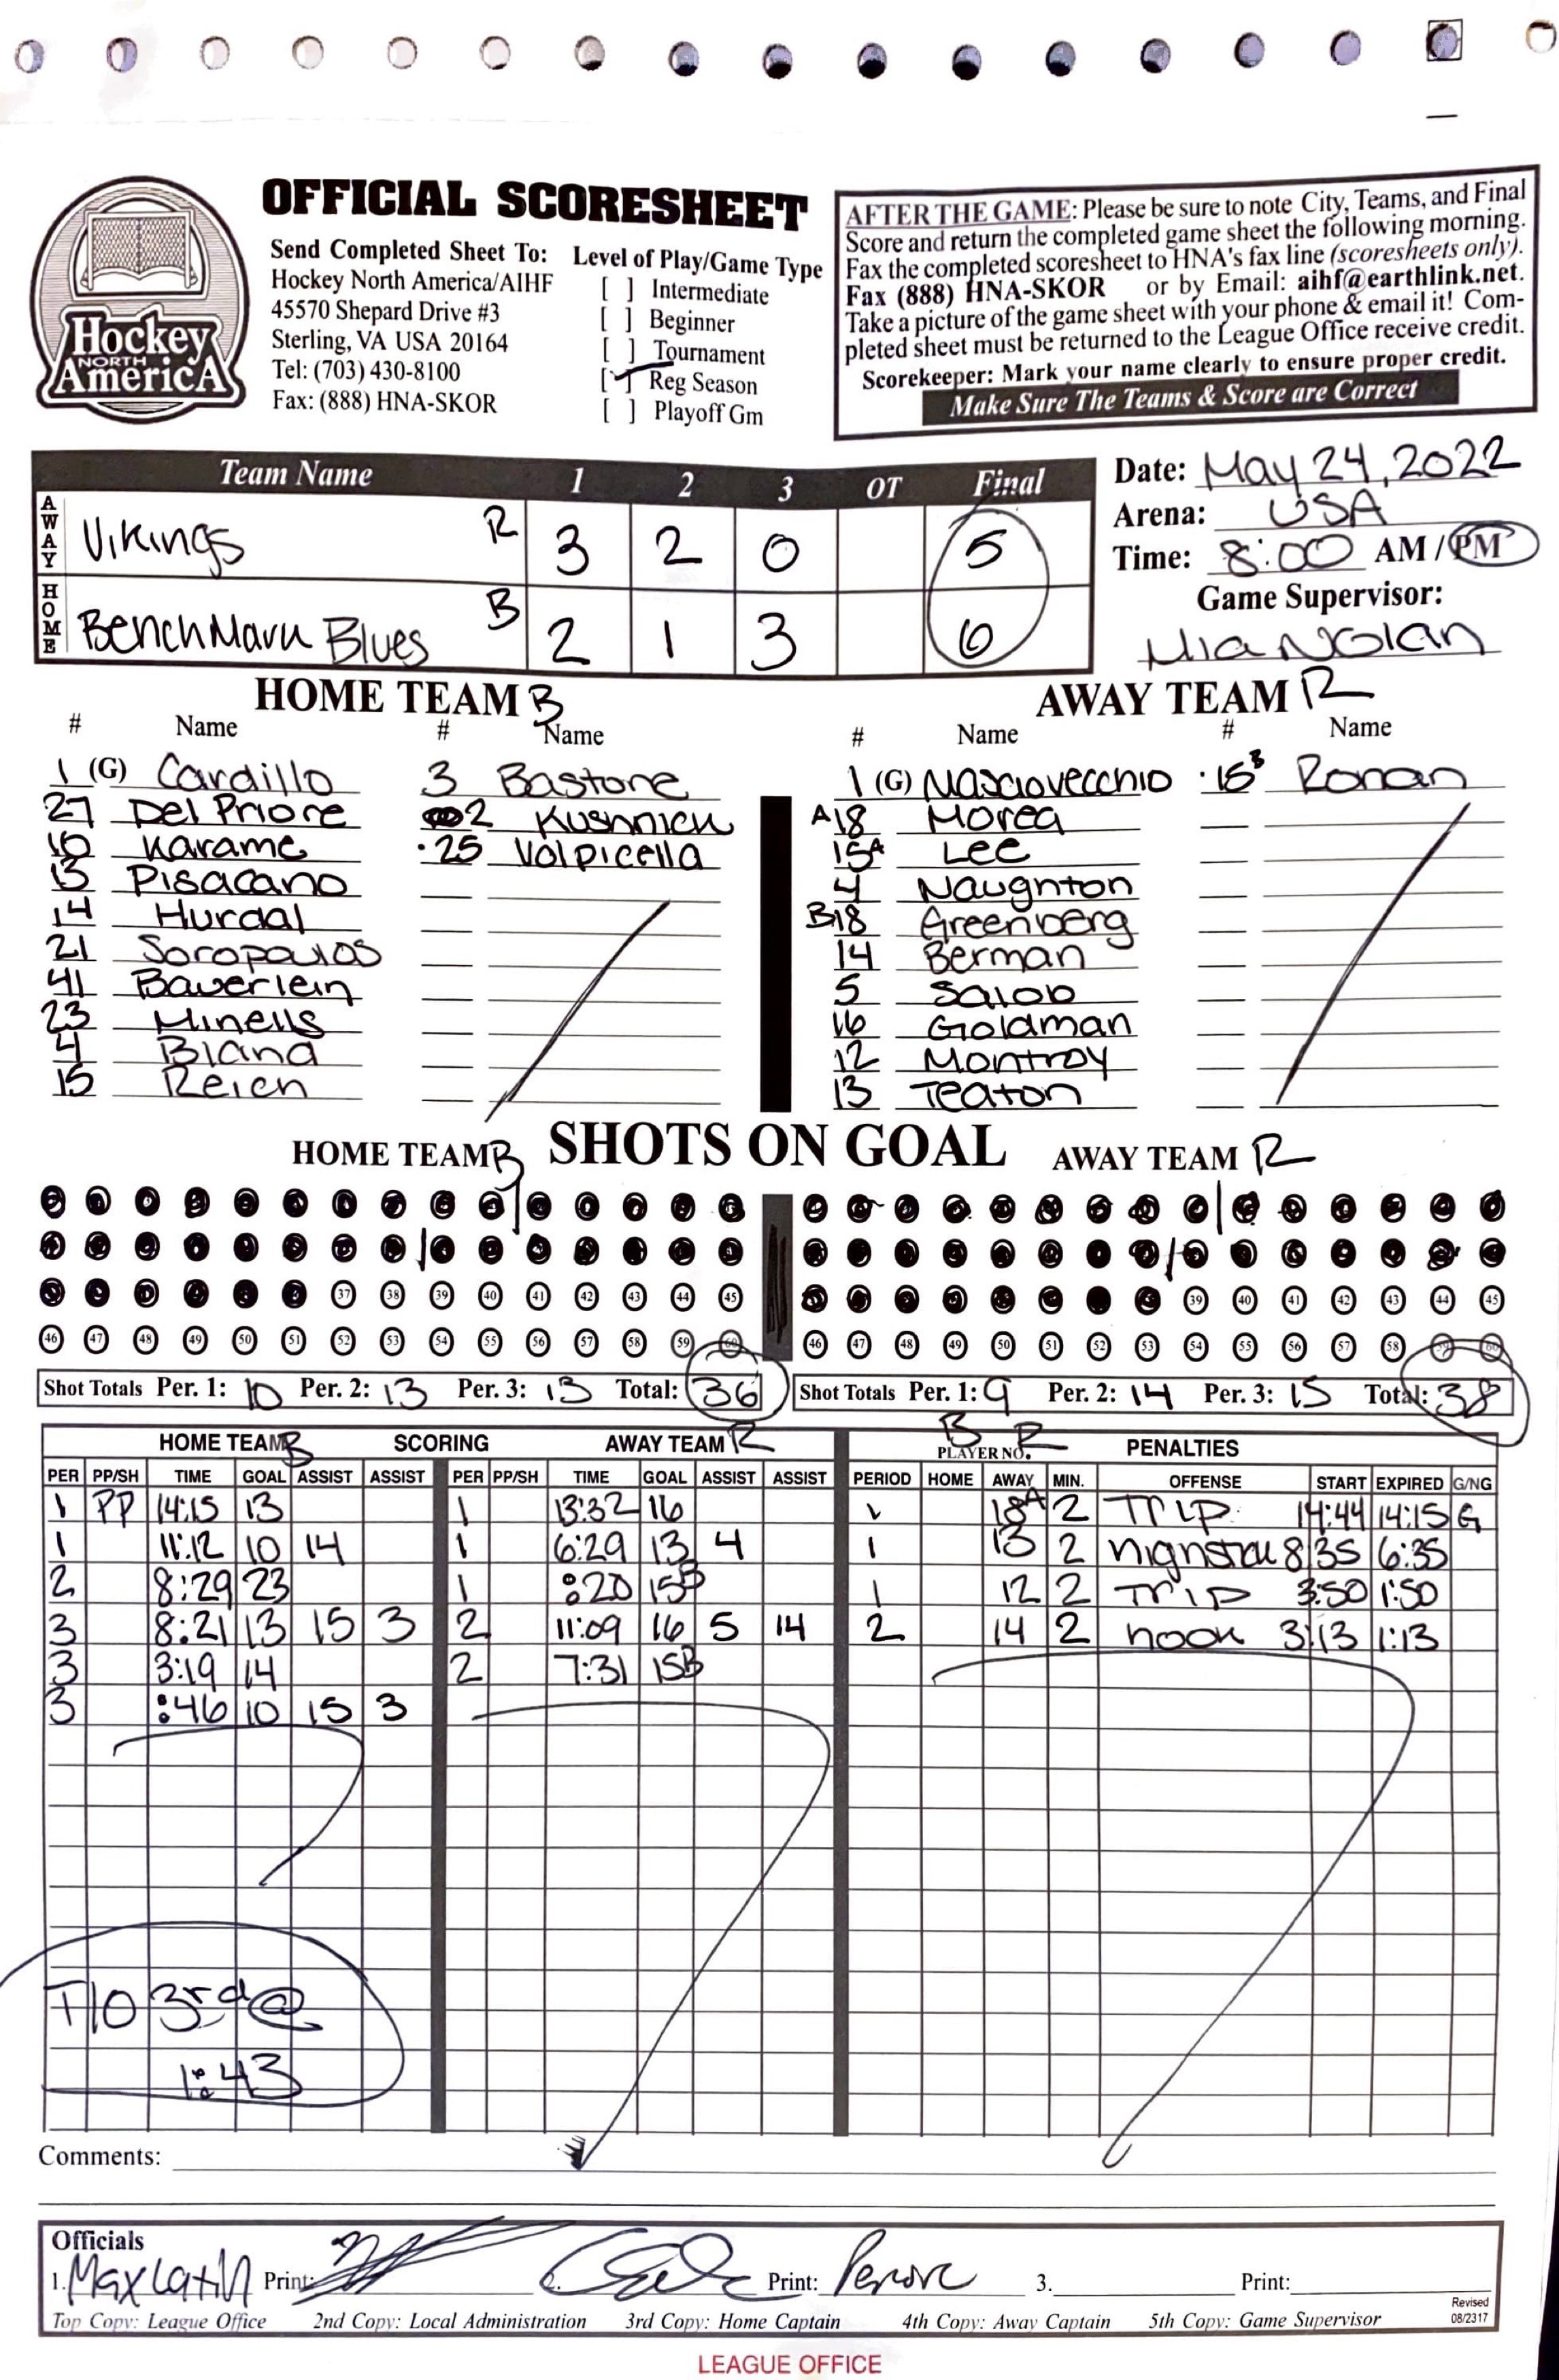 OFFICIAL SCORESHEET
Hockey
NORTH
AmericA
Send Completed Sheet To:
Hockey North America/AIHF
45570 Shepard Drive #3
Sterling, VA USA 20164
Tel: (703) 430-8100
Fax: (888) HNA-SKOR
Level of Play/Game Type
[ ] Intermediate
[ ] Beginner
[ ] Tournament
[✓] Reg Season
[ ] Playoff Gm
AFTER THE GAME: Please be sure to note City, Teams, and Final
Score and return the completed game sheet the following morning.
Fax the completed scoresheet to HNA's fax line (scoresheets only).
Fax (888) HNA-SKOR or by Email: aihf@earthlink.net.
Take a picture of the game sheet with your phone & email it! Com-
pleted sheet must be returned to the League Office receive credit.
Scorekeeper: Mark your name clearly to ensure proper credit.
Make Sure The Teams & Score are Correct
Team Name 1 2 3 OT Final
AWAY Vikings R 3 2 0 5
HOME BenchMark Blues B 2 1 3 6
Date: May 24, 2022
Arena: USA
Time: 8:00 AM / PM
Game Supervisor:
Mia Nolan
HOME TEAM B
# Name # Name
1 (G) Cardillo 3 Bastone
27 Del Priore 2 Kushnick
10 Karame 25 Volpicella
13 Pisacano
14 Hurdal
21 Soropoulos
41 Bauerlein
23 Minells
4 Bland
15 Reich
AWAY TEAM R
# Name # Name
1 (G) Masciovecchio 15B Ronan
A18 Morea
15A Lee
4 Naughton
B18 Greenberg
14 Berman
5 Salob
16 Goldman
12 Montroy
13 Teaton
HOME TEAM B SHOTS ON GOAL AWAY TEAM R
37 38 39 40 41 42 43 44 45 39 40 41 42 43 44 45
46 47 48 49 50 51 52 53 54 55 56 57 58 59 60 46 47 48 49 50 51 52 53 54 55 56 57 58 59 60
Shot Totals Per. 1: 10 Per. 2: 13 Per. 3: 13 Total: 36 Shot Totals Per. 1: 9 Per. 2: 14 Per. 3: 15 Total: 38
HOME TEAM B SCORING AWAY TEAM R
PER PP/SH TIME GOAL ASSIST ASSIST PER PP/SH TIME GOAL ASSIST ASSIST
1 PP 14:15 13 1 13:32 16
1 11:12 10 14 1 6:29 13 4
2 8:29 23 1 :20 15B
3 8:21 13 15 3 2 11:09 16 5 14
3 3:19 14 2 7:31 15B
3 :46 10 15 3
T/O 3rd @
1:43
B R
PLAYER NO. PENALTIES
PERIOD HOME AWAY MIN. OFFENSE START EXPIRED G/NG
1 18A 2 Trip 14:44 14:15 G
1 13 2 highstick 8:35 6:35
1 12 2 Trip 3:50 1:50
2 14 2 hook 3:13 1:13
Comments:
Officials
1. Max Latin Print: 2. Print: 3. Print:
Top Copy: League Office 2nd Copy: Local Administration 3rd Copy: Home Captain 4th Copy: Away Captain 5th Copy: Game Supervisor
Revised
08/2317
LEAGUE OFFICE